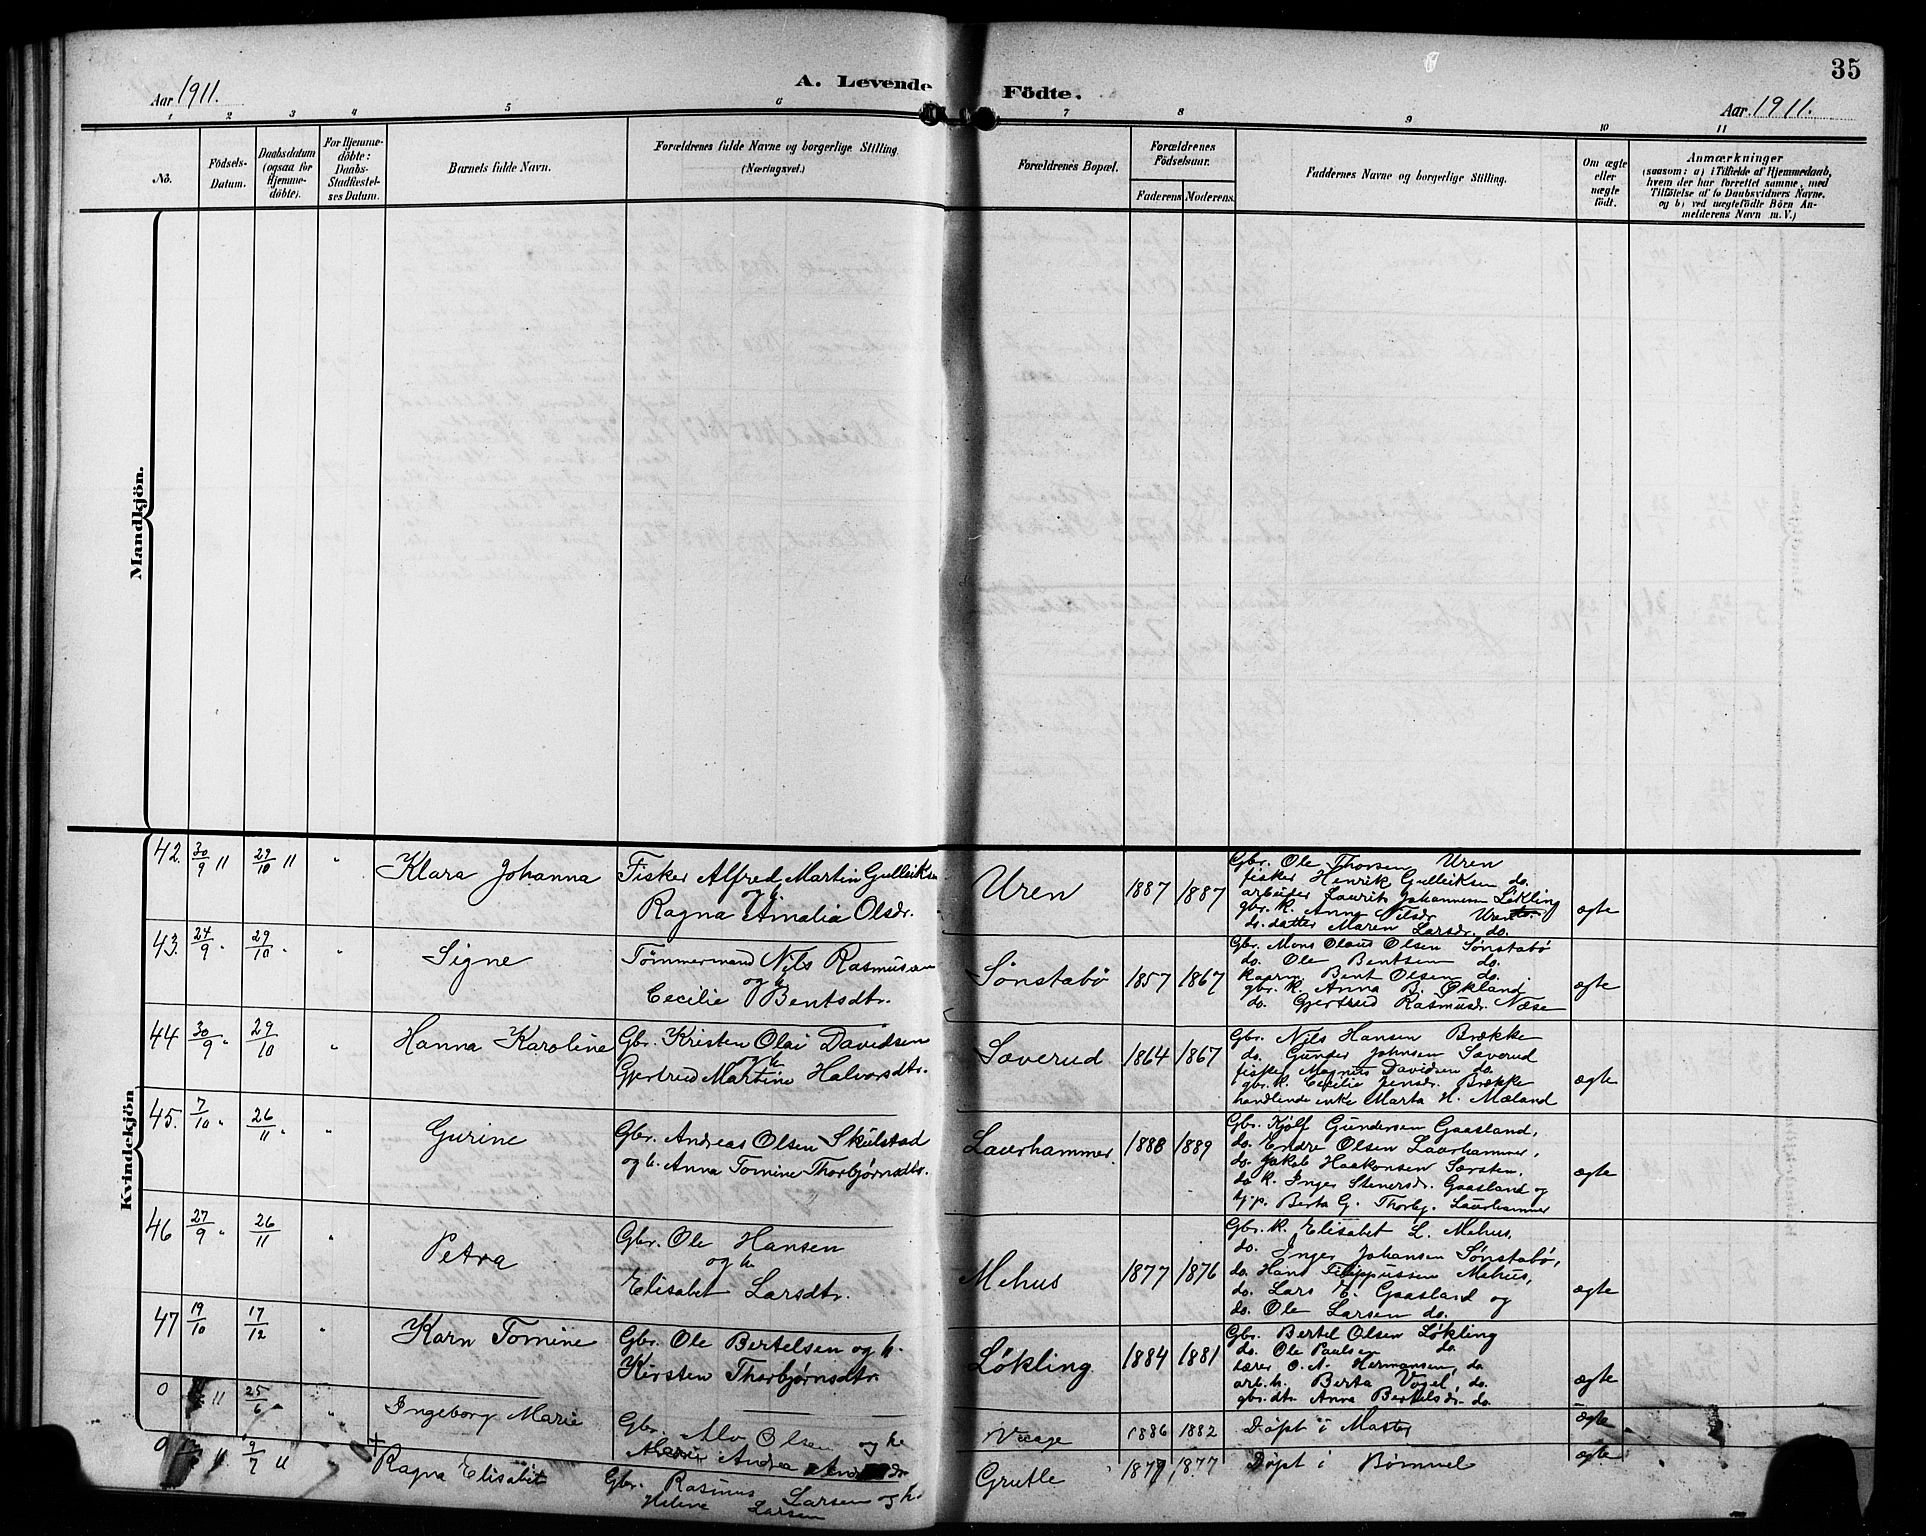 35
Aar 1911.
A. Levende Födte.
Aar 1911.
1 2 3 4 5 6 7 8 9 10 11
No.
Födsels-
Datum.
Daabsdatum
(ogsaa for
Hjemme-
döbte).
For Hjemme-
döbte:
Daabs-
Stadfestel-
ses Datum.
Barnets fulde Navn.
Forældrenes fulde Navne og borgerlige Stilling
(Næringsvei.)
Forældrenes Bopæl.
Forældrenes
Födselsaar.
Faderens Moderens.
Faddernes Navne og borgerlige Stilling.
Om ægte
eller
uægte
født.
Anmærkninger
(saasom: a) i Tilfælde af Hjemmedaab,
hvem der har forrettet samme, med
Tilföielse af to Daabsvidners Navne.
og b) ved uægtefödte Börn An-
melderens Navn m. V.)
Mandkjön.
Kvindekjön
42. 30/9 11 29/10 11 " Klara Johanna
Fisker Alfred Martin Gulleiksen
og h.
Ragna Amalia Olsdr.
Uren 1887 1887
Gbr. Ole Thorsen Uren
fisker Henrik Gulleiksen do.
arbeider Laurits Johannesen Løkling
gbr. k. Anna Nilsdr. Uren
do. datter Maren Larsdr. do.
ægte
43. 24/9 " 29/10 " " Signe
Tømmermand Nils Rasmussen
og h
Cecilie Bentsdtr.
Sønstabø 1857 1867
Gbr. Mons Olaus Olsen Sønstabø
do. Ole Bentsen do.
Bent Olsen do.
gbr. k. Anna B. Økland
do. Gjertrud Rasmusdr. Næse
ægte
44 30/9 " 29/10 " Hanna Karoline
Gbr. Kristen Olai Davidsen
og h
Gjertrud Martine Halvorsdtr.
Saverud 1864 1867
Gbr. Nils Hansen Brække
do. Gunder Johnsen Saverud
fisker Magnus Davidsen do.
gbr. k. Cecilie Jensdr. Brække
handlende enke Marta H. Mæland
ægte
45. 7/10 " 26/11 " " Gurine
Gbr. Andreas Olsen Skulstad
og h. Anna Tomine Thorbjørnsdtr.
Laurhammer. 1888 1889
Gbr. Kjølf Gundersen Gaasland,
do. Endre Olsen Laurhammer,
do. Jakob Haakonsen
do k. Inger Stenersdr. Gaasland og
Berta G. Thorbj. Laurhammer
ægte
46 27/9 " 26/11 " Petra
Gbr. Ole Hansen
og h.
Elisabet Larsdtr.
Mehus 1877 1876
Gbr. k. Elisabet L. Mehus,
do. Inger Johansen Sønstabø,
do. Hans Filippussen Mehus,
do. Lars E. Gaasland og
do. Ole Larsen do.
ægte
47 19/10 17/12 " Karn Tomine
Gbr. Ole Bertelsen og h.
Kirsten Thorbjørnsdtr.
Løkling 1884 1881
Gbr. Bertel Olsen Løkling
do. Ole Paulsen do.
lærer O. A. Hermansen, do.
arb. h. Berta Vogel, do.
gbr. dtr. Anna Bertelsdr. do.
ægte
0 11 25/6 " Ingeborg Marie
Gbr. Alv Olsen og h.
Andrea
Vaage 1886 1882 Døpt i Moster ægte
0 11 9/7 11 + Ragna Elisabet
Gbr. Rasmus Larsen og h.
Helene Larsen
Grutle 1877 1877 Døpt i Bømmel ægte